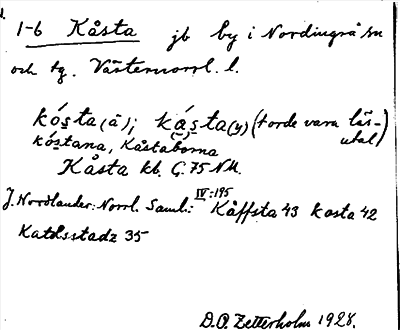 1-6 Kåsta jb by i Nordingrå sn
och tg. Västernorrl. l.
kósta (ä); kásta (y) (torde vara läs-
uttal)
kóstana, Kåstaborna
Kåsta kb. G. 75 NM.
J. Nordlander: Norrl. Saml.: IV:195 Kåffsta 43 kosta 42
Katdsstadz 35
D.O. Zetterholm 1928.